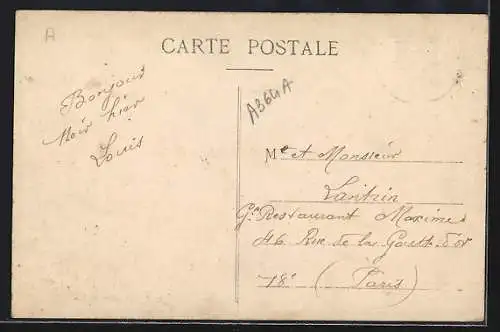 A
CARTE POSTALE
A364A
Bonjour
hier
Louis
Me et Monsieur
Lantzin
Gd Restaurant Maxime
46 Rue de la Goutt d'or
18e (Paris)